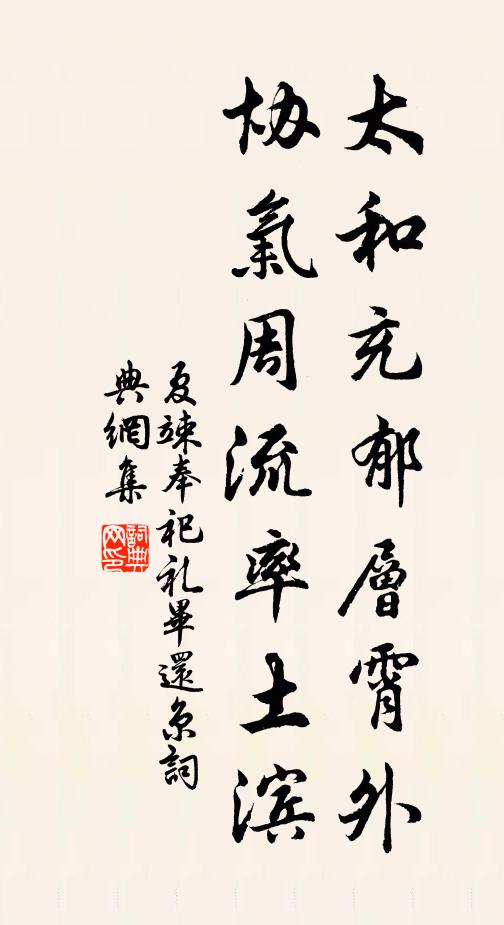 太和充郁層霄外
协氣周流率土滨
夏竦奉祀礼畢還京詞
典網集
詞典
网印